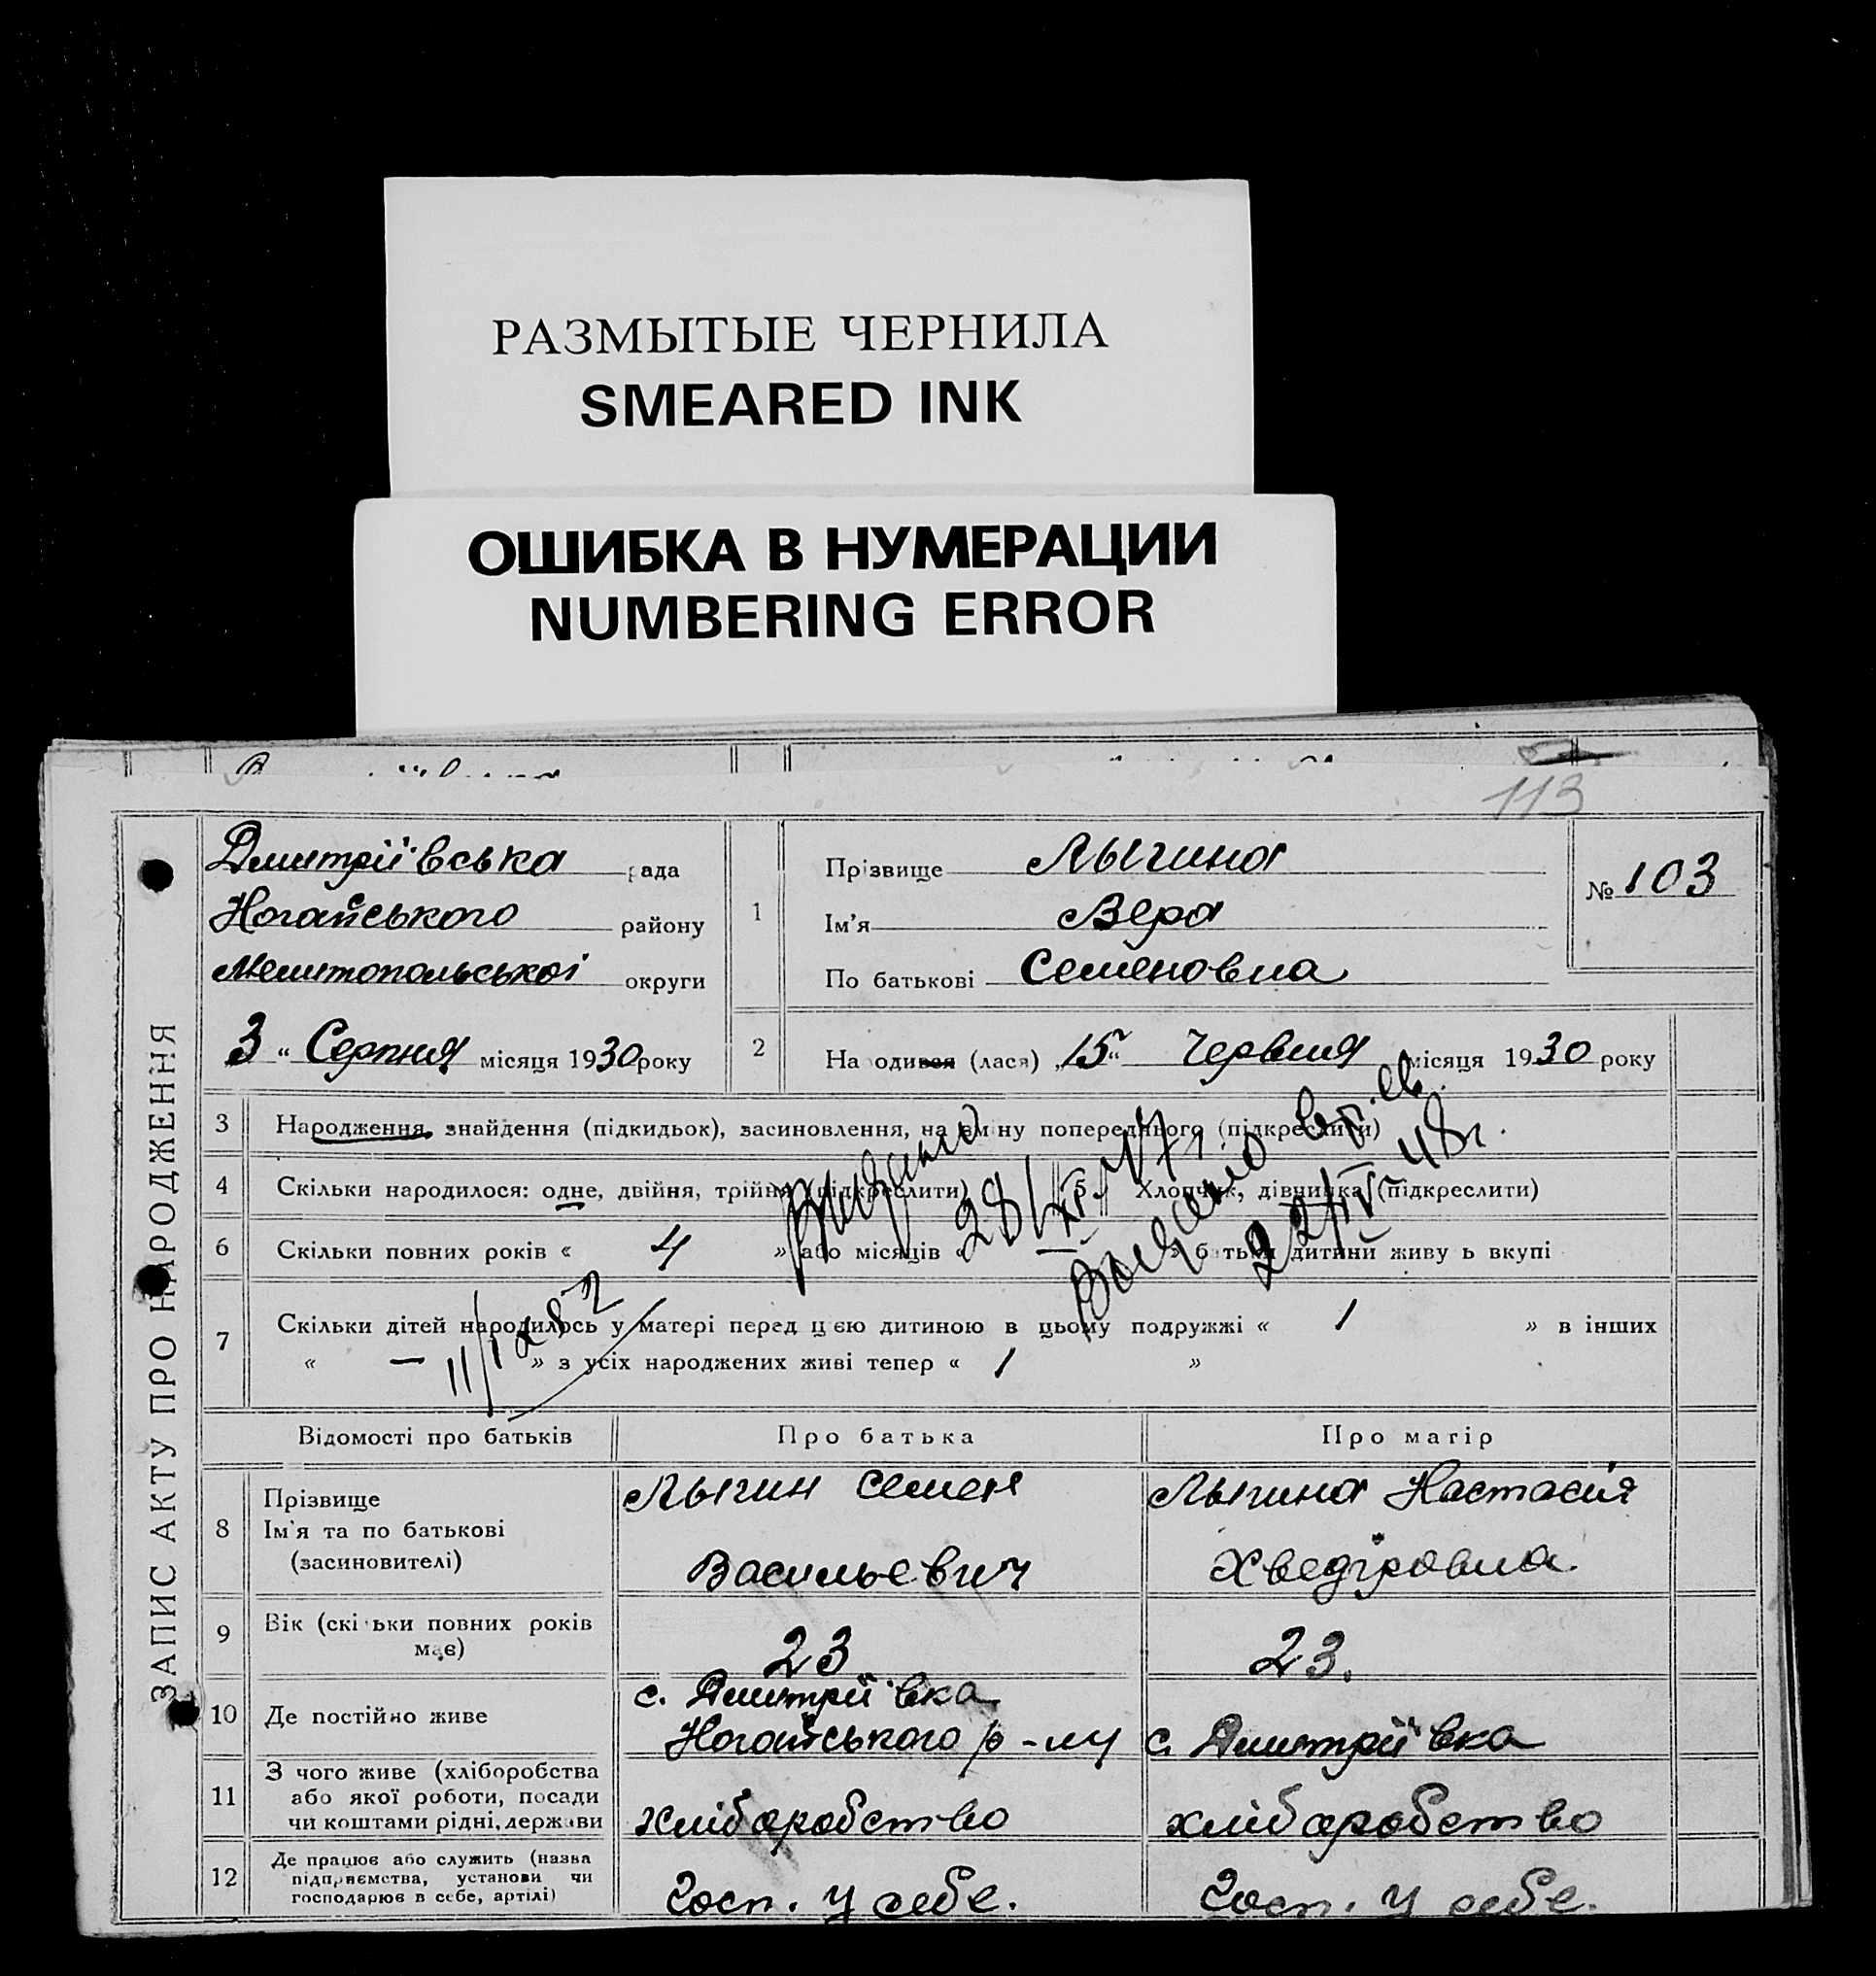 РАЗМЫТЫЕ ЧЕРНИЛА
SMEARED INK
ОШИБКА В НУМЕРАЦИИ
NUMBERING ERROR
113
ЗАПИС АКТУ ПРО НАРОДЖЕННЯ
Дмитріївська рада
Ногайського району
Мелитопольської округи
3 " Серпня місяця 1930 року
1
Прізвище Лыгина
Ім'я Вера
По батькові Семеновна
№ 103
2
Народився (лася) „15" Червня місяця 1930 року
3 Народження, знайдення (підкидьок), засиновлення, на зміну попереднього (підкреслити)
4 Скільки народилося: одне, двійня, трійня (підкреслити) 5 Хлопчик, дівчинка (підкреслити)
6 Скільки повних років « 4 » або місяців « » батьки дитини живуть вкупі
28/XI 47г
22/IV 48г.
7 Скільки дітей народилось у матері перед цією дитиною в цьому подружжі « 1 » в інших
« — » з усіх народжених живі тепер « 1 »
Відомості про батьків Про батька Про матір
8 Прізвище
Ім'я та по батькові
(засиновителі)
Лыгин Семен
Васильевич
Лыгина Настасія
Хведіровна
9 Вік (скільки повних років
має)
23
23.
10 Де постійно живе
с. Дмитріївка
Ногайського р-ну
с. Дмитріївка
11 З чого живе (хліборобства
або якої роботи, посади
чи коштами рідні, держави
хліборобство
хліборобство
12 Де працює або служить (назва
підприємства, установи чи
господарює в себе, артілі)
Госп. у себе.
Госп. у себе.